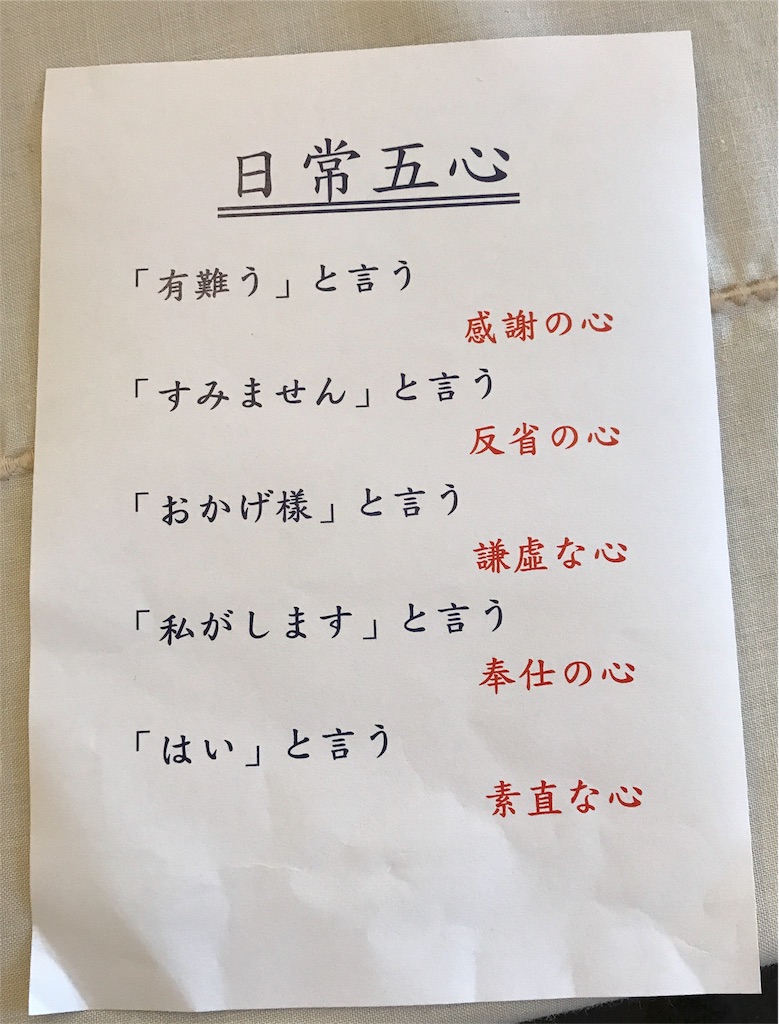 日常五心
「有難う」と言う
感謝の心
「すみません」と言う
反省の心
「おかげ様」と言う
謙虚な心
「私がします」と言う
奉仕の心
「はい」と言う
素直な心